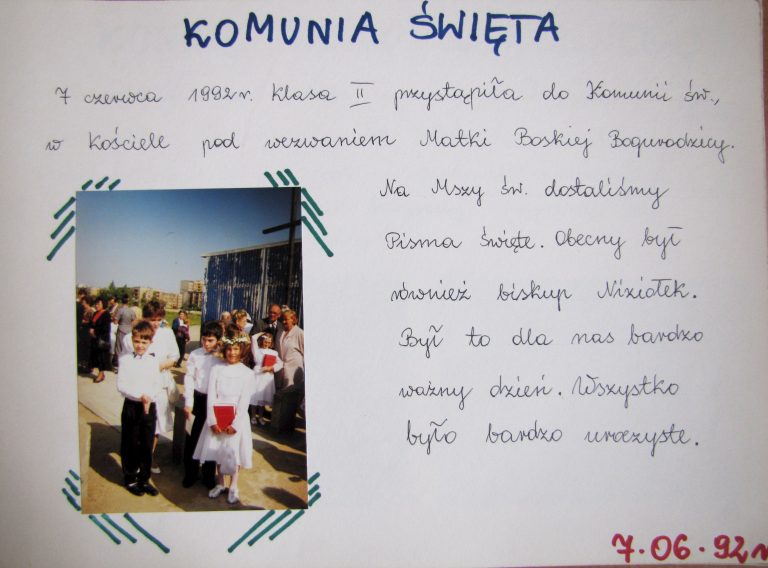 KOMUNIA ŚWIĘTA
7 czerwca 1992r. klasa II przystąpiła do Komunii św.,
w kościele pod wezwaniem Matki Boskiej Bogurodzicy.
Na Mszy św. dostaliśmy
Pisma święte. Obecny był
również biskup Niziołek.
Był to dla nas bardzo
ważny dzień. Wszystko
było bardzo uroczyste.
7.06.92r